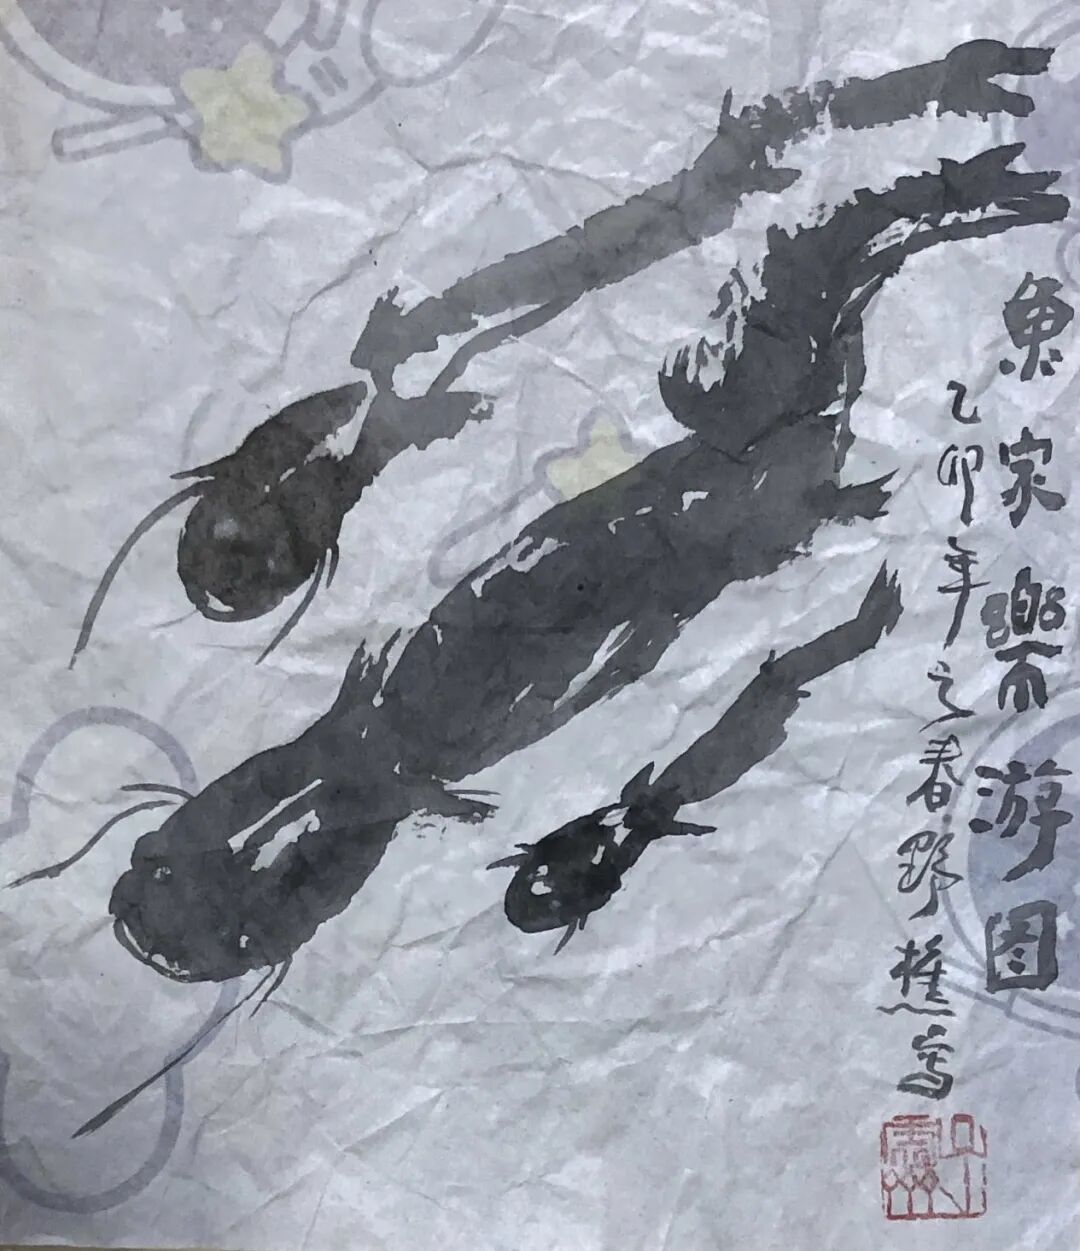 魚家樂游图
乙卯年之春野樵写